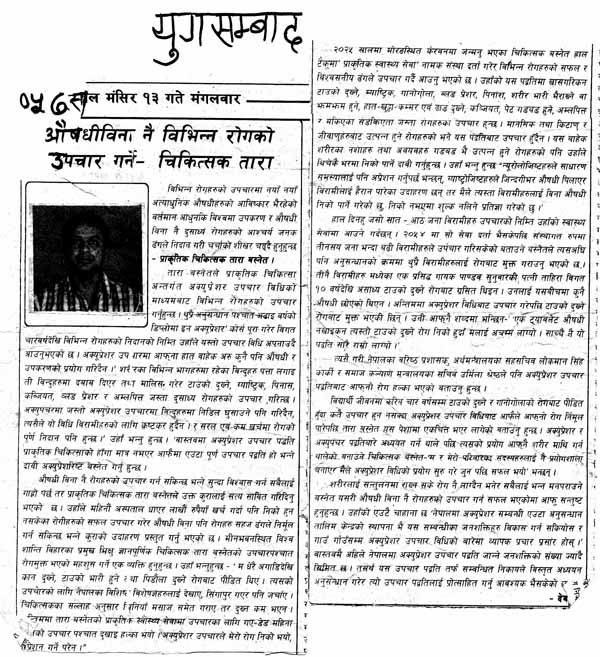 युगसम्वाद
०५७ साल मंसिर १३ गते मंगलबार
औषधीविना नै विभिन्न रोगको
उपचार गर्ने- चिकित्सक तारा
विभिन्न रोगहरुको उपचारमा नयाँ नयाँ
अत्याधुनिक औषधीहरुको आविष्कार भैरहेको
वर्तमान आधुनकि विश्वमा उपकरण र औषधी
विना नै दुसाध्य रोगहरुको आश्चर्य जनक
ढंगले निदान गरी चर्चाको शीखर चढ्दै हुनुहुन्छ
- प्राकृतिक चिकित्सक तारा बस्नेत।
तारा बस्नेतले प्राकृतिक चिकित्सा
अन्तर्गत अक्युप्रेसर उपचार विधिको
माध्यमबाट विभिन्न रोगहरुको उपचार
गर्नुहुन्छ। थुप्रै अनुसन्धान पश्चात अढाई वर्षको
डिप्लोमा इन अक्युप्रेशर' कोर्स पुरा गरेर विगत
चारवर्षदेखि विभिन्न रोगहरुको निदानको निम्ति उहाँले यस्तो उपचार विधि अपनाउदै
आउनुभएको छ। अक्युप्रेशर उपचारमा आफ्ना हात बाहेक अरु कुनै पनि औषधी र
उपकरणको प्रयोग गरिदैन।' शरीरका विभिन्न भागहरुमा रहेका विन्दुहरु पत्ता लगाई
ती विन्दुहरुमा दवाव दिएर तथा मालिस गरेर टाउको दुख्ने, ग्याष्ट्रिक, पिनास,
कब्जियत, ब्लड प्रेशर र अम्लपित्त जस्ता दुसाध्य रोगहरुको उपचार गरिन्छ।
अक्युपंचरमा जस्तो अक्युप्रेशर उपचारमा विन्दुहरुमा निडिल घुसाउने पनि गरिदैन,
त्यसैले यो विधि विरामीहरुको लागि कष्टकर हुदैन। र सरल एवं कम खर्चमा रोगको
पूर्ण निदान पनि हुन्छ।' उहाँ भन्नु हुन्छ। 'वास्तवमा अक्युप्रेशर उपचार पद्धति
प्राकृतिक चिकित्साको हाँगा मात्र नभएर आफैमा एउटा पूर्ण उपचार पद्धति हो भन्ने
दावी अक्युप्रेशरिष्ट बस्नेत गर्नु हुन्छ।
औषधी विना नै रोगहरुको उपचार गर्न सकिन्छ भन्ने सुन्दा विश्वास गर्न सबैलाई
गाह्रो पर्छ तर प्राकृतिक चिकित्सक तारा बस्नेतले उक्त कुरालाई सत्य सावित गरिदिनु
भएको छ। उहाँले महिनौ अस्पताल धाएर लाखौं रुपैयाँ खर्च गर्दा पनि निको हुन
नसकेका रोगीहरुको सफल उपचार गरेर औषधी विना नै पनि रोगहरु सहज ढंगले निर्मूल
गर्न सकिन्छ भन्ने कुराको उदाहरण प्रस्तुत गर्नु भएको छ। मीनभवनस्थित विश्व
शान्ति विहारका प्रमुख भिक्षु ज्ञानपूर्णिक चिकित्सक तारा बस्नेतको उपचारपश्चात
रोगमुक्त भएको महशुस गर्ने एक व्यक्ति हुनुहुन्छ। उहाँ भन्नुहुन्छ- ' म धेरै अगाडिदेखि
कान दुख्ने, टाउको भारी हुने र पिठौला दुख्ने रोगबाट पीडित थिए। त्यसको
उपचारको लागि नेपालका विशिष्ठ विशेषज्ञहरुलाई देखाए, सिंगापुर गएर पनि जचाएँ।
चिकित्सकका सल्लाह अनुसार दुनियाँ मसाज समेत गराए तर दुख्न कम भएन।
अन्तिममा तारा बस्नेतको प्राकृतिक स्वास्थ्य सेवामा उपचारका लागि गए-डेढ महिना-
को उपचार पश्चात दुखाइ हल्का भयो। अक्युप्रेशर उपचारले मेरो रोग निको भयो,
अप्रेशन गर्नै परेन।"
२०२५ सालमा मोरङस्थित केरवनमा जन्मनु भएका चिकित्सक बस्नेत हाल
टेकुमा' प्राकृतिक स्वास्थ्य सेवा' नामक संस्था दर्ता गरेर विभिन्न रोगहरुको सफल र
विश्वसनीय ढंगले उपचार गर्दै आउनु भएको छ। उहाँको यस पद्धतिमा खासगरिकन
टाउको दुख्ने, म्याष्ट्रिक, गानोगोला, ब्लड प्रेशर, पिनास, शरीर भारी भैराख्ने वा
झमझम हुने, हात-खुट्टा-कम्मर एवं ढाड दुख्ने, कब्जियत, पेट गडबड हुने, अम्लपित्त
र मर्किएका सडकिएता जस्ता रोगहरुका उपचार हुन्छ। मानसिक तथा किटाणु र
जीवाणुहरुबाट उत्पन्न हुने रोगहरुको भने यस पद्धतिबाट उपचार हुँदैन। यस बाहेक
शरीरका नशाहरु तथा अवयवहरु गडबड भै उत्पन्न हुने रोगहरुको पनि उहाँले
थिचेकै भरमा निको पार्ने दावी गर्नुहुन्छ। उहाँ भन्नु हुन्छ "न्युरोलोजिष्टहरुले साधारण
समस्यालाई पनि अप्रेशन गर्नुपर्छ भन्छन्, ग्याष्ट्रोजिष्टहरुले जिन्दगीभर औषधी पिलाएर
विरामीलाई हैरान पारेका उदाहरण छन् तर मैले त्यस्ता विरामीहरुलाई विना औषधी
निको पार्ने गरेको छु, निको नभएमा शुल्क नलिने प्रतिज्ञा गरेको छु।'
हाल दिनहु जसो सात - आठ जना विरामीहरु उपचारको निम्ति उहाँको स्वास्थ्य
सेवामा आउने गर्दछन्। २०५४ मा सो सेवा दर्ता भैसकेपछि संस्थागत रुपमा
तीनसय जना भन्दा बढी विरामीहरुले उपचार गरिसकेको बताउने बस्नेतले त्यसअघि
पनि अनुसन्धानको क्रममा थुप्रै विरामीहरुलाई रोगबाट मुक्त गराउनु भएको छ।
तीनै विरामीहरु मध्येका एक प्रसिद्ध गायक पाण्डव सुनुवारकी पत्नी ताहिरा विगत
१० वर्षदेखि असाध्य टाउको दुख्ने रोगबाट ग्रसित थिइन। उनलाई यसबीचमा कुनै
औषधी छोएको थिएन। अन्तिममा अक्युप्रेशर विधिबाट उपचार गरेपछि टाउको दुख्ने
रोगबाट मुक्त भएकी छिन्। उनी आफ्नै शब्दमा भन्छिन- 'एक ट्याबलेट औषधी
नखाइकन त्यस्तो टाउको दुख्ने रोग निको हुदाँ मलाई अचम्म लाग्यो। साच्चै नै यो
पद्धति साह्रै राम्रो लाग्यो।
त्यस्तै गरी नेपालका वरिष्ठ प्रशासक, अर्थमन्त्रालयका सहसचिव लोकमान सिंह
कार्की र समाज कल्याण मन्त्रालयका सचिव उर्मिला श्रेष्ठले पनि अक्युप्रेशर उपचार
पद्धतिबाट आफ्नो रोग हल्का भएको बताउनु हुन्छ।
विद्यार्थी जीवनमा करिब चार वर्षसम्म टाउको दुख्ने र गानोगोलाको रोगबाट पीडित
हुँदा कतै उपचार हुन नसक्दा अक्युप्रेशर उपचार विधिबाट आफैले आफ्नो रोग निर्मूल
पारेपछि तारा बस्नेत यस पेशामा एकचित्त भएर लागेको बताउनु हुन्छ। अक्युप्रेशर र
अक्युपंचर पद्धतिबारे अध्ययन गर्न थाले पछि त्यसको प्रयोग आफ्नै शरीर माथि गर्न
थालेको बताउने चिकित्सक बस्नेत-'म र मेरो परिवारका सदस्यहरुलाई नै प्रयोगशाला
बनाएर मैले अक्युप्रेशर विधिको प्रयोग सुरु गरे जुन पछि सफल भयो' भन्छन्।
शरीरलाई सन्तुलनमा राख्न सके रोग नै लाग्दैन भनेर सबैलाई भन्न मनपराउने
बस्नेत यसरी औषधी विना नै रोगहरुको उपचार गर्न सफल भएकोमा आफू सन्तुष्ट
हुनुहुन्छ। उहाँको एउटै चाहाना छ 'नेपालमा अक्युप्रेशर सम्बन्धी एउटा अनुसन्धान
तालिम केन्द्रको स्थापना भै यस सम्बन्धीका जनशक्तिहरु विकास गर्न सकियोस र
गाउँ गाउँसम्म अक्युप्रेशर उपचार विधिको बारेमा व्यापक प्रचार प्रसार होस्।'
वास्तवमै अहिले नेपालमा अक्युप्रेशर उपचार पद्धति जान्ने जनशक्तिको संख्या ज्यादै
सिमित छ। तसर्थ यस उपचार पद्धति तर्फ सम्बन्धित निकायले विस्तृत अध्ययन
अनुसन्धान गरेर त्यो उपचार पद्धतिलाई प्रोत्साहित गर्नु आवश्यक भैसकेको
- देव